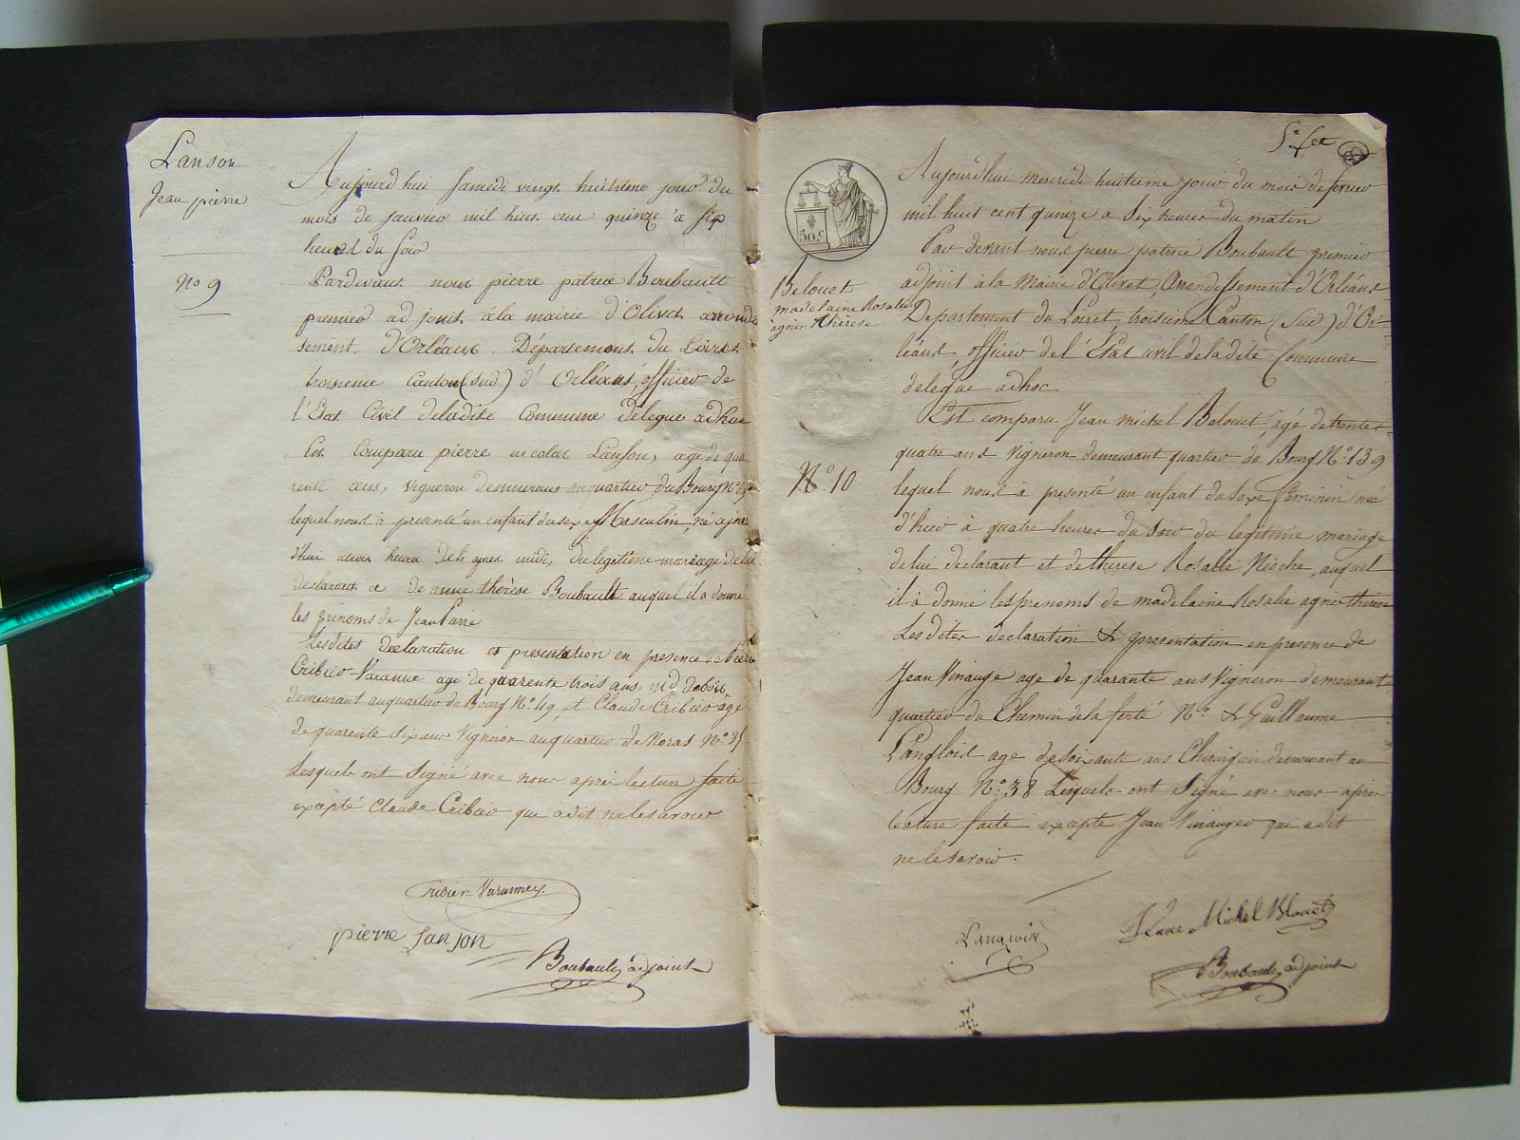 Lanson
Jean pierre
No 9
Aujourd'hui Samedi vingt huitieme jour du
mois de Janvier mil huit cent quinze à six
heures du Soir
Pardevant nous pierre patrice Boubault
premier adjoint à la mairie d'Olivet arrondis
sement d'Orléans Département du Loiret
troisieme Canton (Sud) d'Orléans, officier de
l'Etat Civil de ladite Commune délégué adhoc
Est Comparu pierre nicolas Lanson, age de qua
rente ans, vigneron demeurant au quartier du Bourg No
lequel nous à présenté un enfant du sexe Masculin, né
d'hui heures de l'après midi, du legitime mariage de lui
declarant et de anne thérèse Boubault auquel il a donné
les prénoms de Jean Pierre
Lesdites declaration et presentation en presence de
Cribier-Varanne age de quarente trois ans md de bois,
demeurant au quartier du Bourg No 49, et Claude Cribier age
de quarente six ans vigneron au quartier de Noras No 35
Lesquels ont Signé avec nous après lecture faite
exepté Claude Cribier qui a dit ne le savoir
Cribier-Varannes
pierre lanson
Boubault adjoint
5e fet
50 c
Belouet
madelaine Rosalie
agnès thérèse
No 10
Aujourd'hui mercredi huitieme jour du mois de fevrier
mil huit cent quinze a Six heures du matin
Par devant nous pierre patrice Boubault premier
adjoint à la Mairie d'Olivet, Arrondissement d'Orléans
Departement du Loiret, troisieme Canton (Sud) d'Or-
léans, officier de l'Etat civil de ladite Commune
delegué adhoc
Est comparu Jean michel Belouet, agé de trente
quatre ans Vigneron demeurant quartier du Bourg No 139
lequel nous à presenté un enfant du Sexe féminin née
d'hier à quatre heures du Soir du legitime mariage
de lui declarant et de therese Rosalie Nioche, auquel
il à donné les prenoms de madelaine Rosalie agnès therese
Les dites declaration & presentation en presence de
Jean Vinauger age de quarante ans Vigneron demeurant
quartier du Chemin de la ferté No & Guillaume
Langlois age de soixante ans demeurant au
Bourg No 38 Lesquels ont Signé avec nous après
lecture faite exepté Jean Vinauger qui a dit
ne le savoir.
Langlois
Jean Michel Blouet
Boubault adjoint